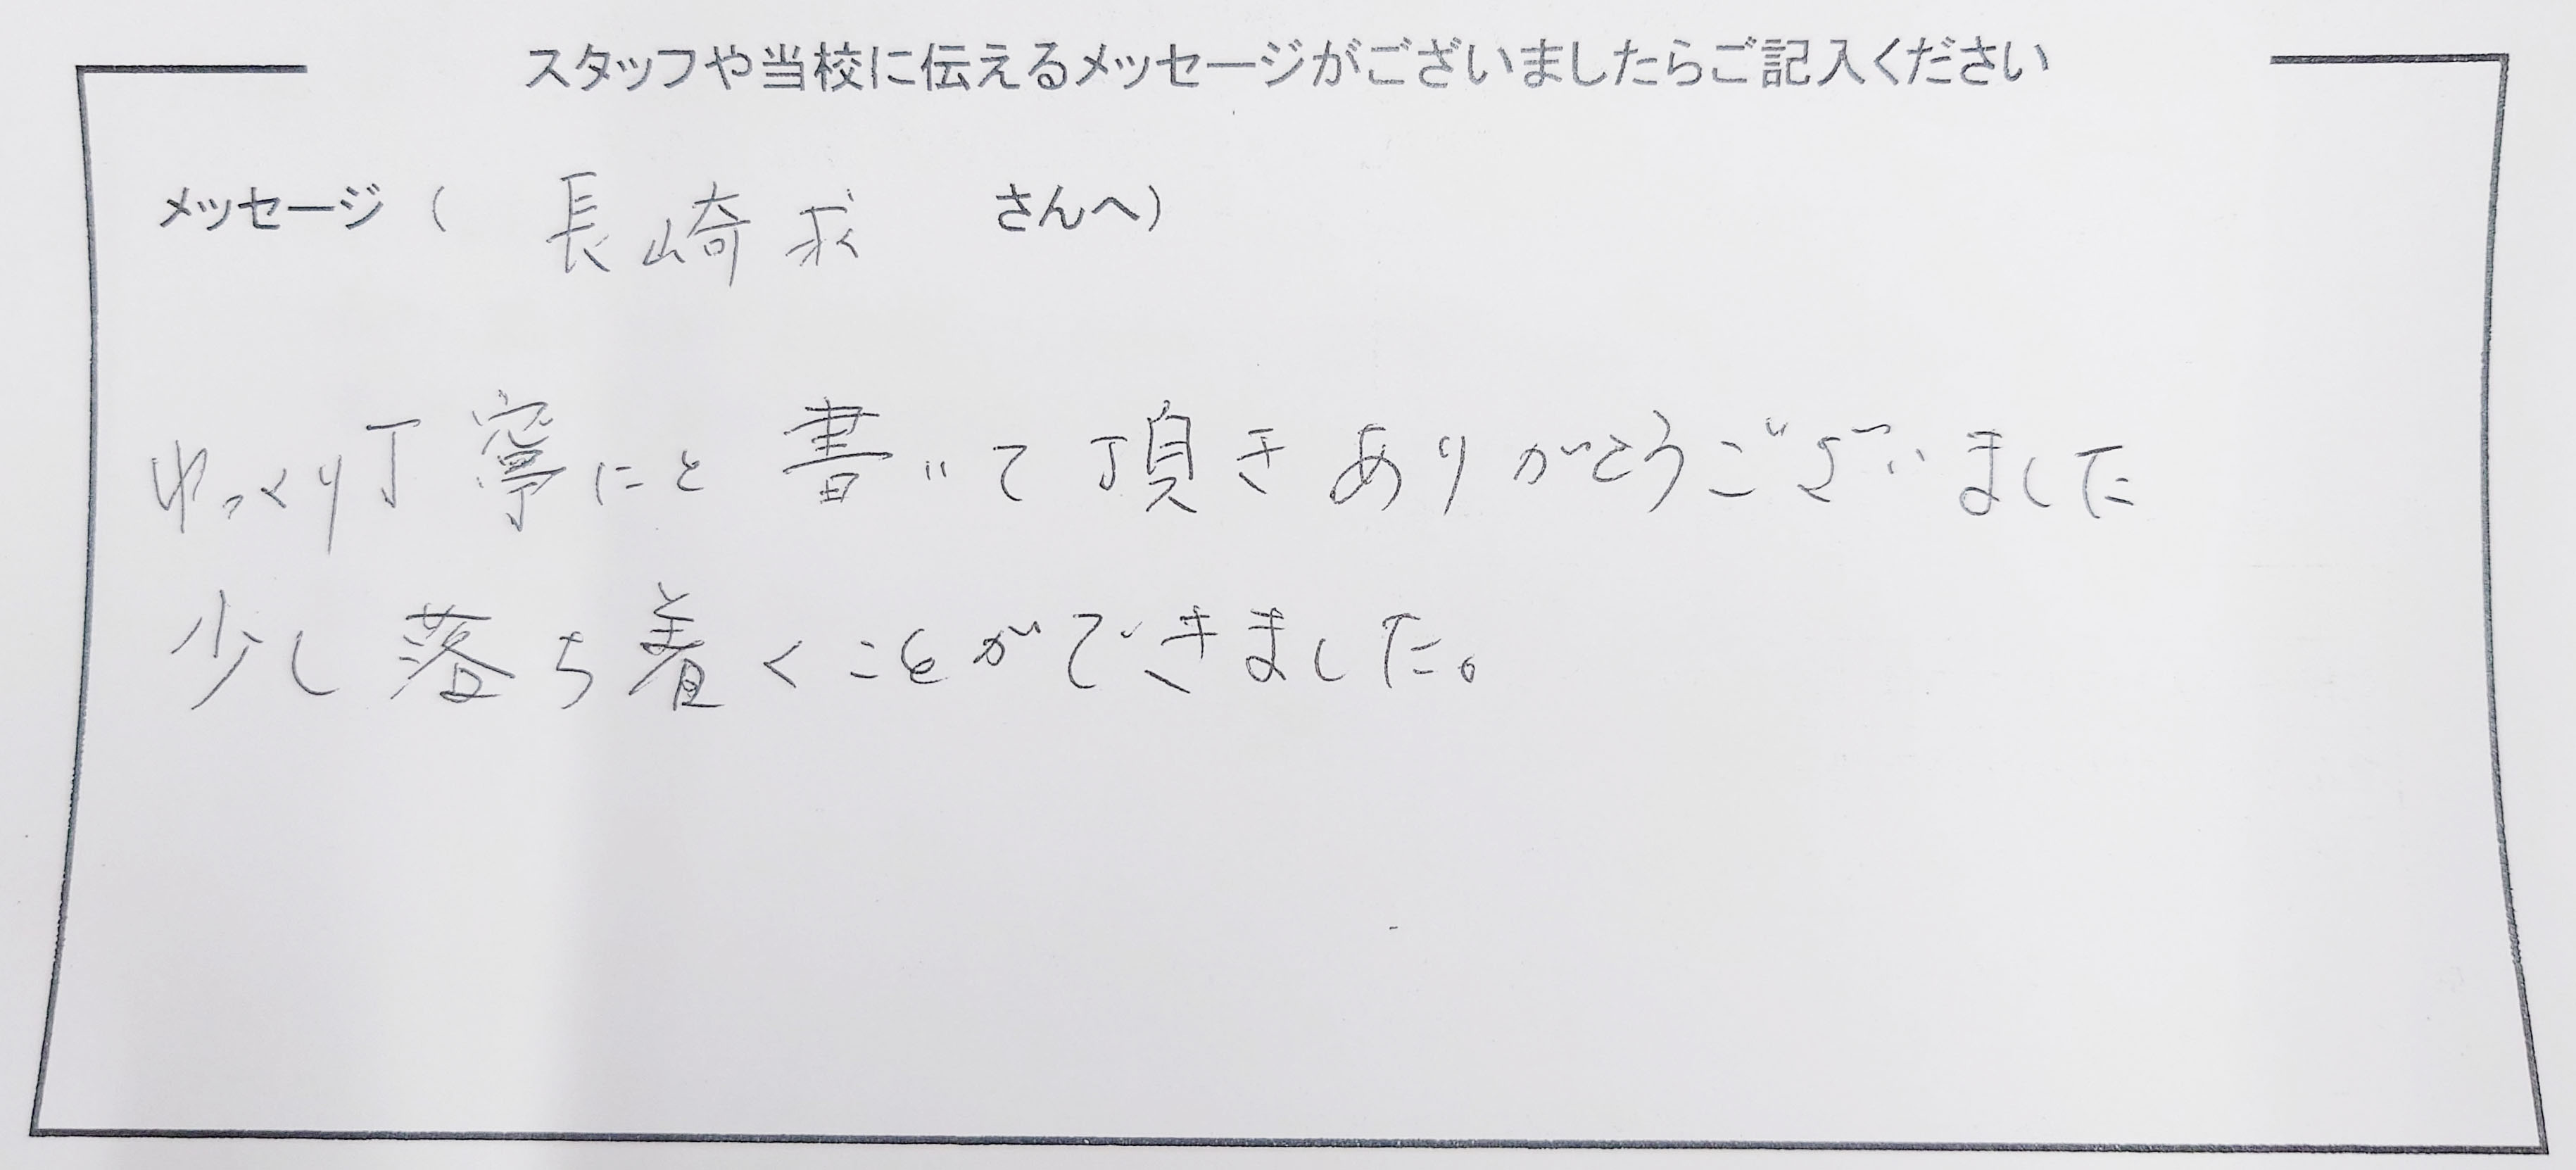 スタッフや当校に伝えるメッセージがございましたらご記入ください
メッセージ ( 長崎求 さんへ)
ゆっくり丁寧にと書いて頂きありがとうございました
少し落ち着くことができました。